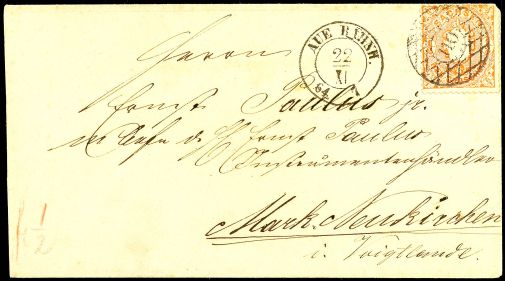 AUE BAHNH
22
XI
64
Herrn
Ernst Paulus jr.
Ernst Paulus
Instrumentenhändler
Mark-Neukirchen
i. Voigtlande.
1/2